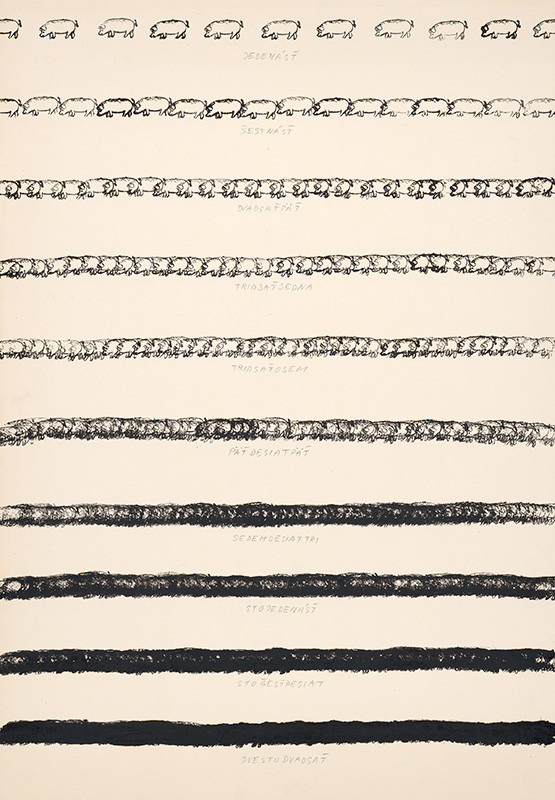 JEDENÁSŤ
ŠESTNÁSŤ
DVADSAŤPÄŤ
TRIDSAŤJEDNA
TRIDSAŤOSEM
PÄŤDESIATPÄŤ
SEDEMDESIATTRI
STOJEDENÁSŤ
STOŠESŤDESIAT
DVESTODVADSAŤ